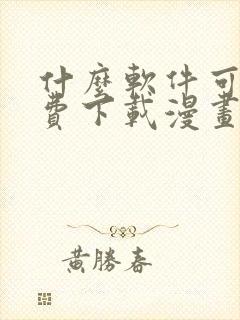 什麼軟件可
費下載漫畫
黃勝春